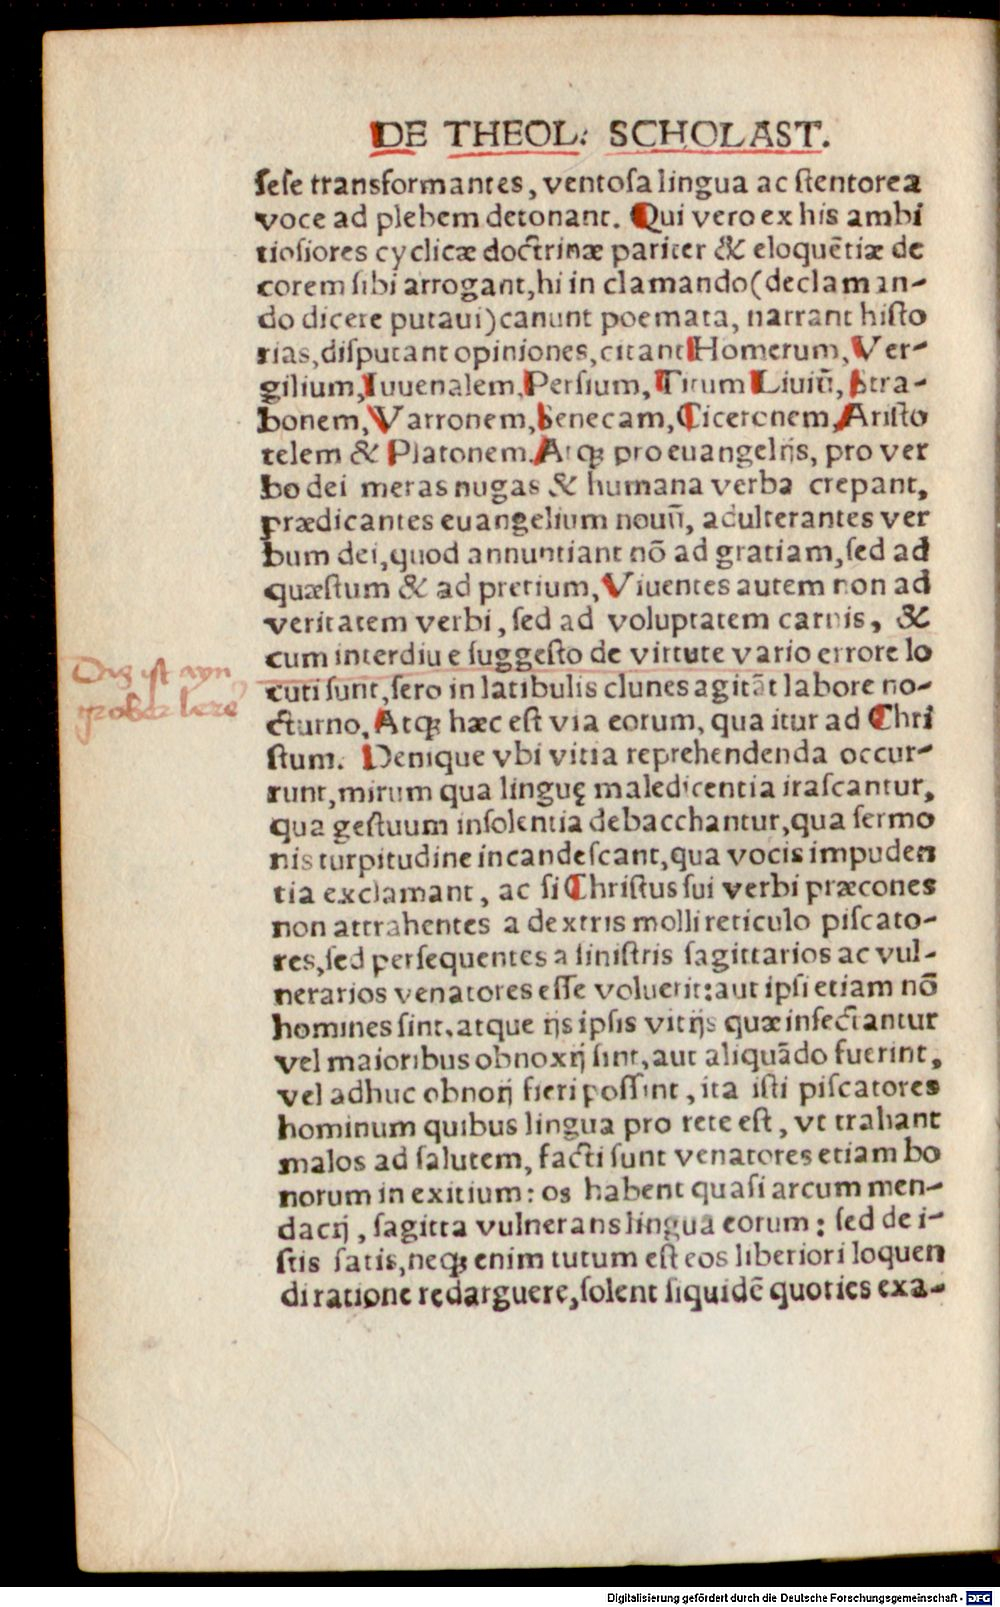 DE THEOL: SCHOLAST.
sese transformantes, ventosa lingua ac stentorea
voce ad plebem detonant. Qui vero ex his ambi
tiosiores cyclicæ doctrinæ pariter & eloquētiæ de
corem sibi arrogant, hi in clamando (declaman-
do dicere putaui) canunt poemata, narrant histo
rias, disputant opiniones, citant Homerum, Ver-
gilium, Iuuenalem, Persium, Titum Liuiū, Stra-
bonem, Varronem, Senecam, Ciceronem, Aristo
telem & Platonem. Atqꝫ pro euangelijs, pro ver
bo dei meras nugas & humana verba crepant,
prædicantes euangelium nouū, adulterantes ver
bum dei, quod annuntiant nō ad gratiam, sed ad
quæstum & ad pretium, Viuentes autem non ad
veritatem verbi, sed ad voluptatem carnis, &
cum interdiu e suggesto de virtute vario errore lo
Das ist ayn
cuti sunt, sero in latibulis clunes agitāt labore no-
grober lere
cturno. Atqꝫ hæc est via eorum, qua itur ad Chri
stum. Denique vbi vitia reprehendenda occur-
runt, mirum qua linguę maledicentia irascantur,
qua gestuum insolentia debacchantur, qua sermo
nis turpitudine incandescant, qua vocis impuden
tia exclamant, ac si Christus sui verbi præcones
non attrahentes a dextris molli reticulo piscato-
res, sed persequentes a sinistris sagittarios ac vul-
nerarios venatores esse voluerit: aut ipsi etiam nō
homines sint, atque ijs ipsis vitijs quæ insectantur
vel maioribus obnoxij sint, aut aliquādo fuerint,
vel adhuc obnoxij fieri possint, ita isti piscatores
hominum quibus lingua pro rete est, vt trahant
malos ad salutem, facti sunt venatores etiam bo
norum in exitium: os habent quasi arcum men-
dacij, sagitta vulnerans lingua eorum: sed de i-
stis satis, neqꝫ enim tutum est eos liberiori loquen
di ratione redarguere, solent siquidē quoties exa-
Digitalisierung gefördert durch die Deutsche Forschungsgemeinschaft - DFG